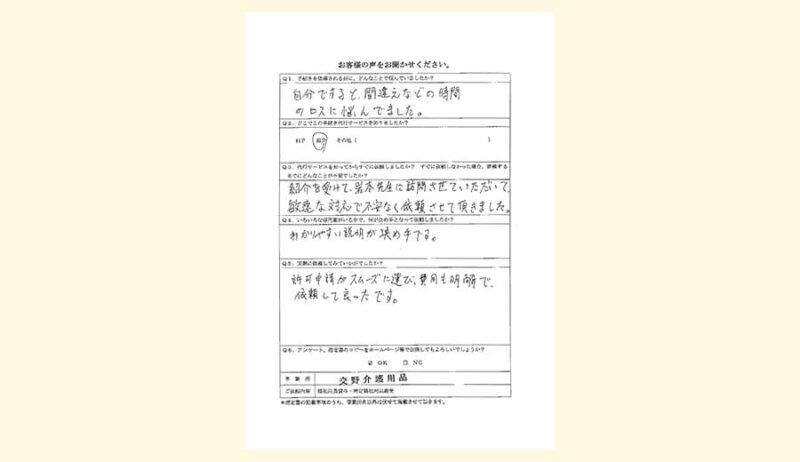 お客様の声をお聞かせください。
Q1. 手続きを依頼される前に、どんなことで悩んでいましたか?
自分ですると、間違えなどの時間
のロスに悩んでました。
Q2. どこでこの手続き代行サービスを知りましたか?
HP 紹介 その他( )
Q3. 代行サービスを知ってからすぐに依頼しましたか? すぐに依頼しなかった場合、依頼する
までにどんなことが不安でしたか?
紹介を受けて、岩本先生に訪問させていただいて、
敏速な対応で不安なく依頼させて頂きました。
Q4. いろいろな専門家がいる中で、何が決め手となって依頼しましたか?
わかりやすい説明が決め手でる。
Q5. 実際に依頼してみていかがでしたか?
許可申請がスムーズに運び、費用も明確で、
依頼して良かったです。
Q6. アンケート、推定書のコピーをホームページ等で公開してもよろしいでしょうか?
☑ OK □ NG
事業所 交野介護用品
ご依頼内容 福祉用具貸与・特定福祉用具販売